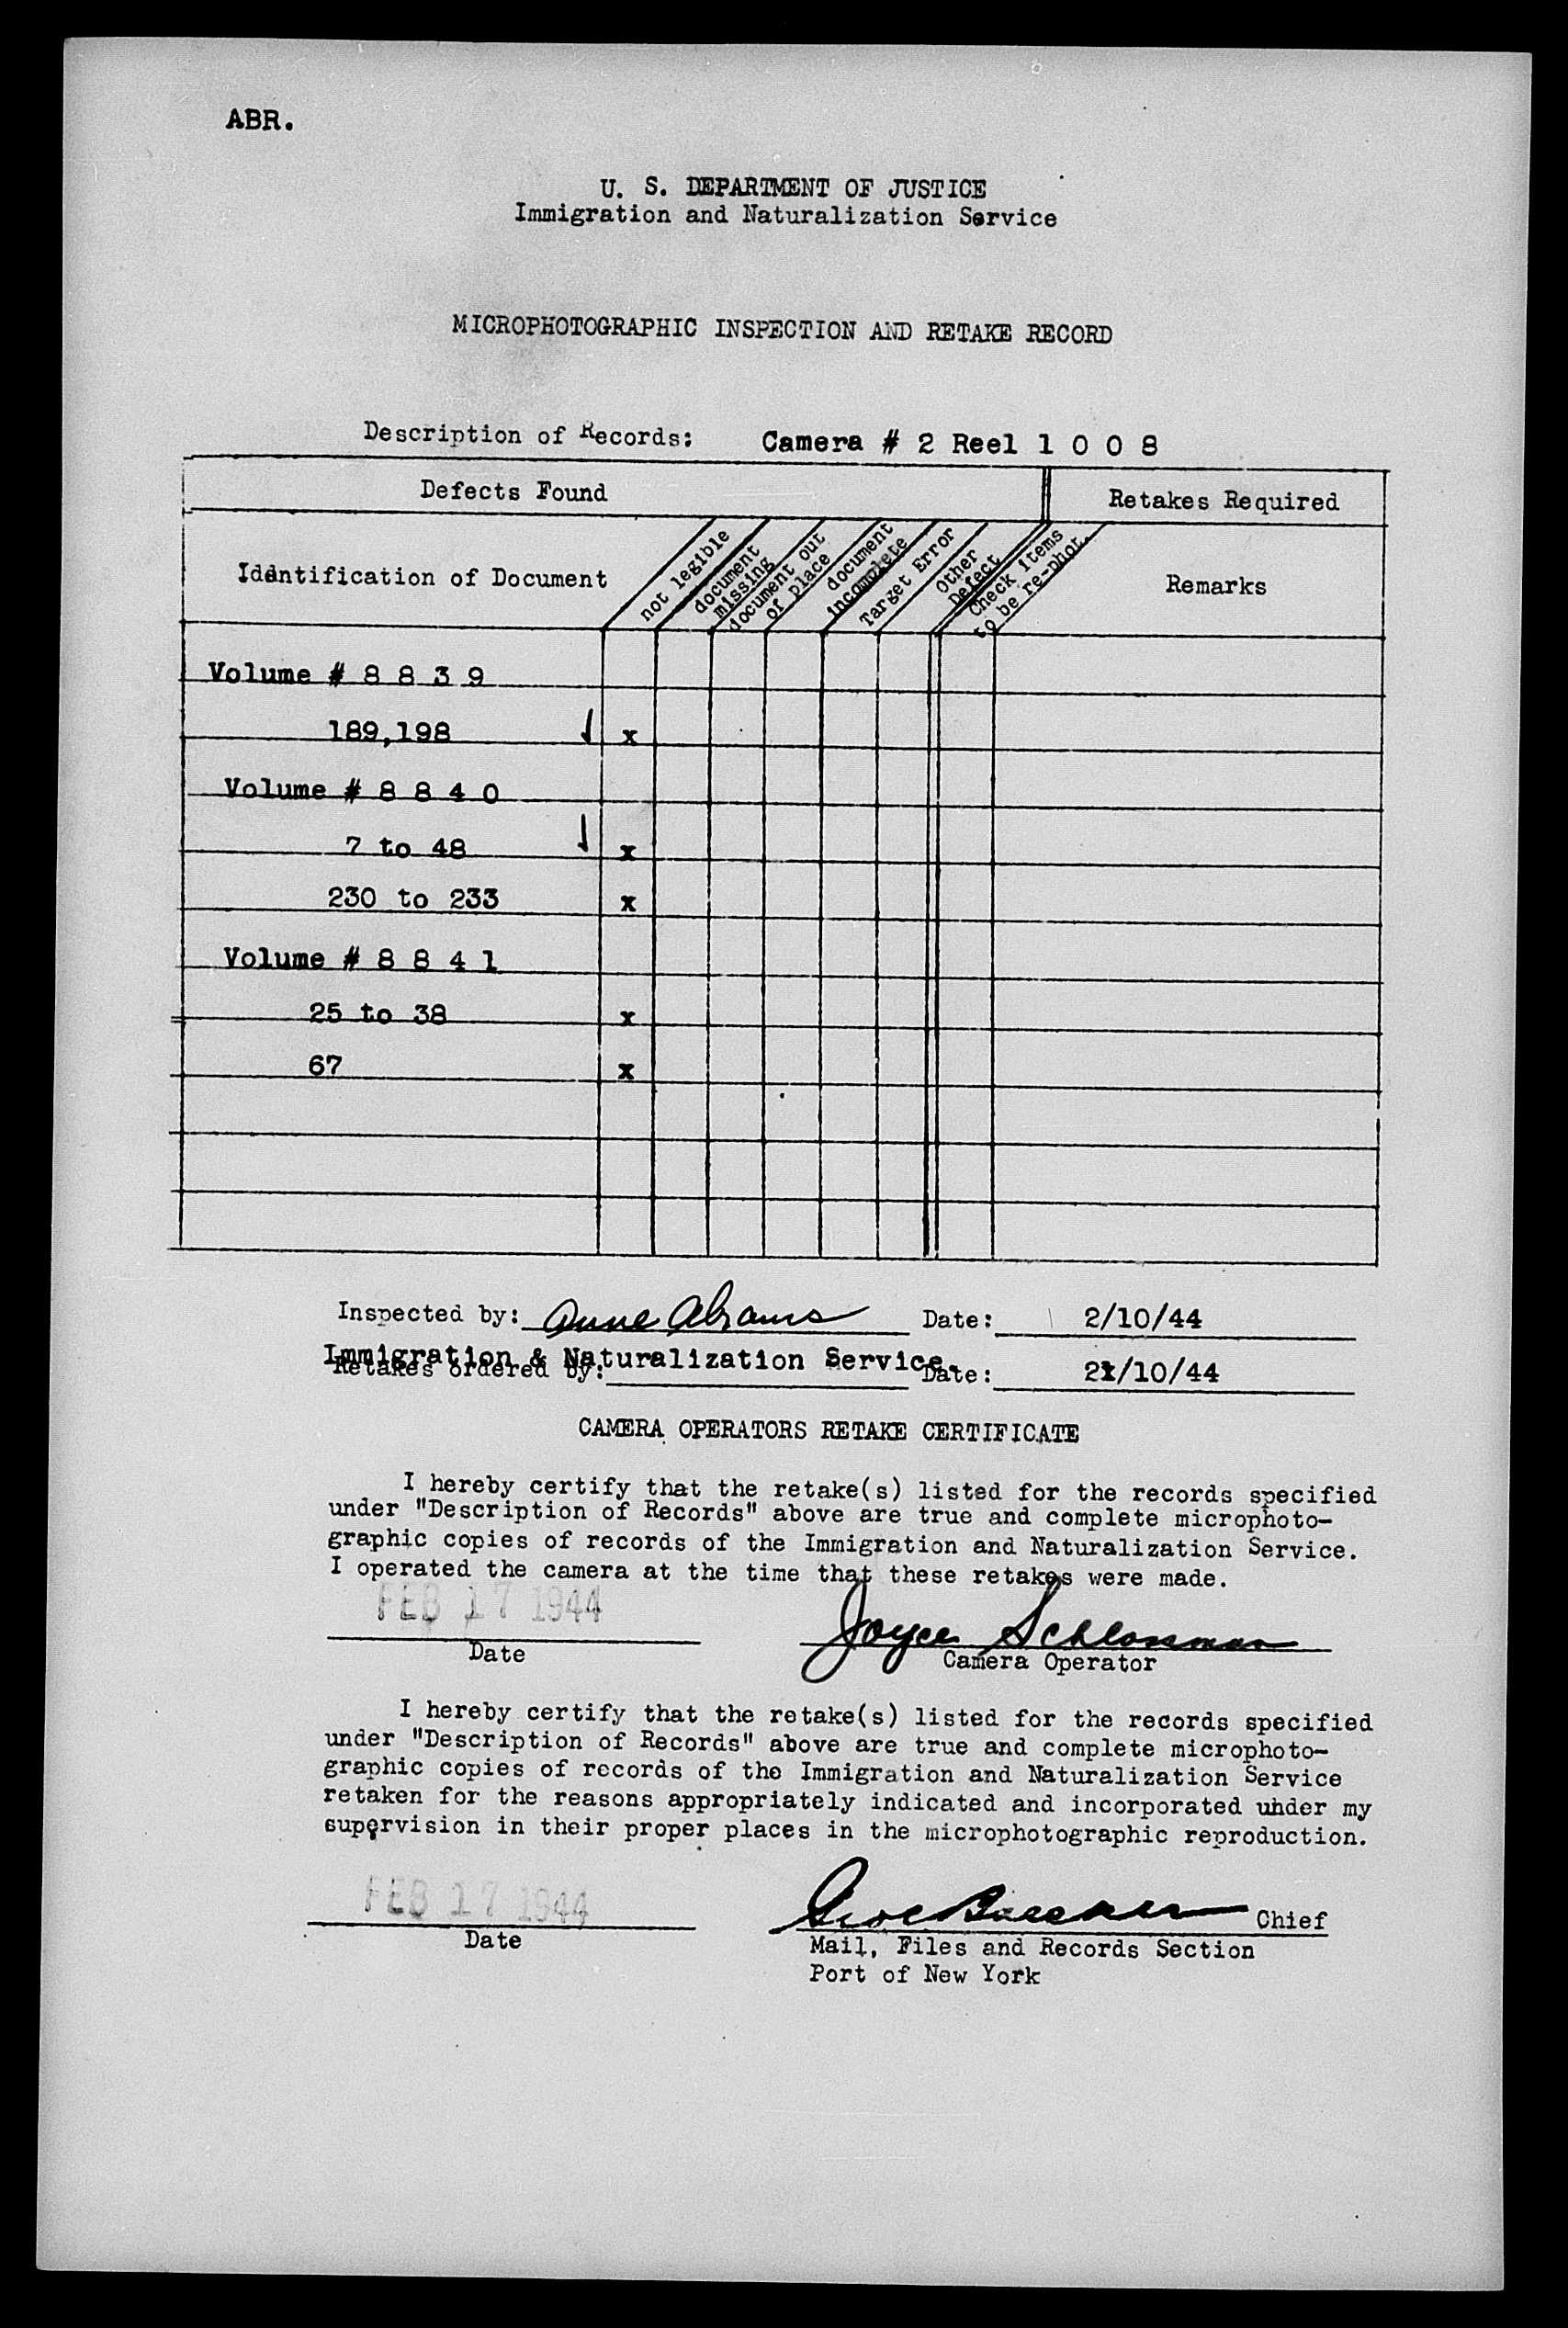 ABR.
U. S. DEPARTMENT OF JUSTICE
Immigration and Naturalization Service
MICROPHOTOGRAPHIC INSPECTION AND RETAKE RECORD
Description of Records: Camera # 2 Reel 1 0 0 8
Defects Found
Retakes Required
Idèntification of Document
not legible
document missing
document out of place
document incomplete
Target Error
Other Defect
Check items to be re-phot.
Remarks
Volume # 8 8 3 9
189,198 x
Volume # 8 8 4 0
7 to 48 x
230 to 233 x
Volume # 8 8 4 1
25 to 38 x
67 x
Inspected by: Anne Abrams Date: 2/10/44
Immigration & Naturalization Service.
Retakes ordered by: Date: 2/10/44
CAMERA OPERATORS RETAKE CERTIFICATE
I hereby certify that the retake(s) listed for the records specified
under "Description of Records" above are true and complete microphoto-
graphic copies of records of the Immigration and Naturalization Service.
I operated the camera at the time that these retakes were made.
FEB 17 1944
Joyce Schlossman
Date
Camera Operator
I hereby certify that the retake(s) listed for the records specified
under "Description of Records" above are true and complete microphoto-
graphic copies of records of the Immigration and Naturalization Service
retaken for the reasons appropriately indicated and incorporated under my
supervision in their proper places in the microphotographic reproduction.
FEB 17 1944
Chief
Date
Mail, Files and Records Section
Port of New York